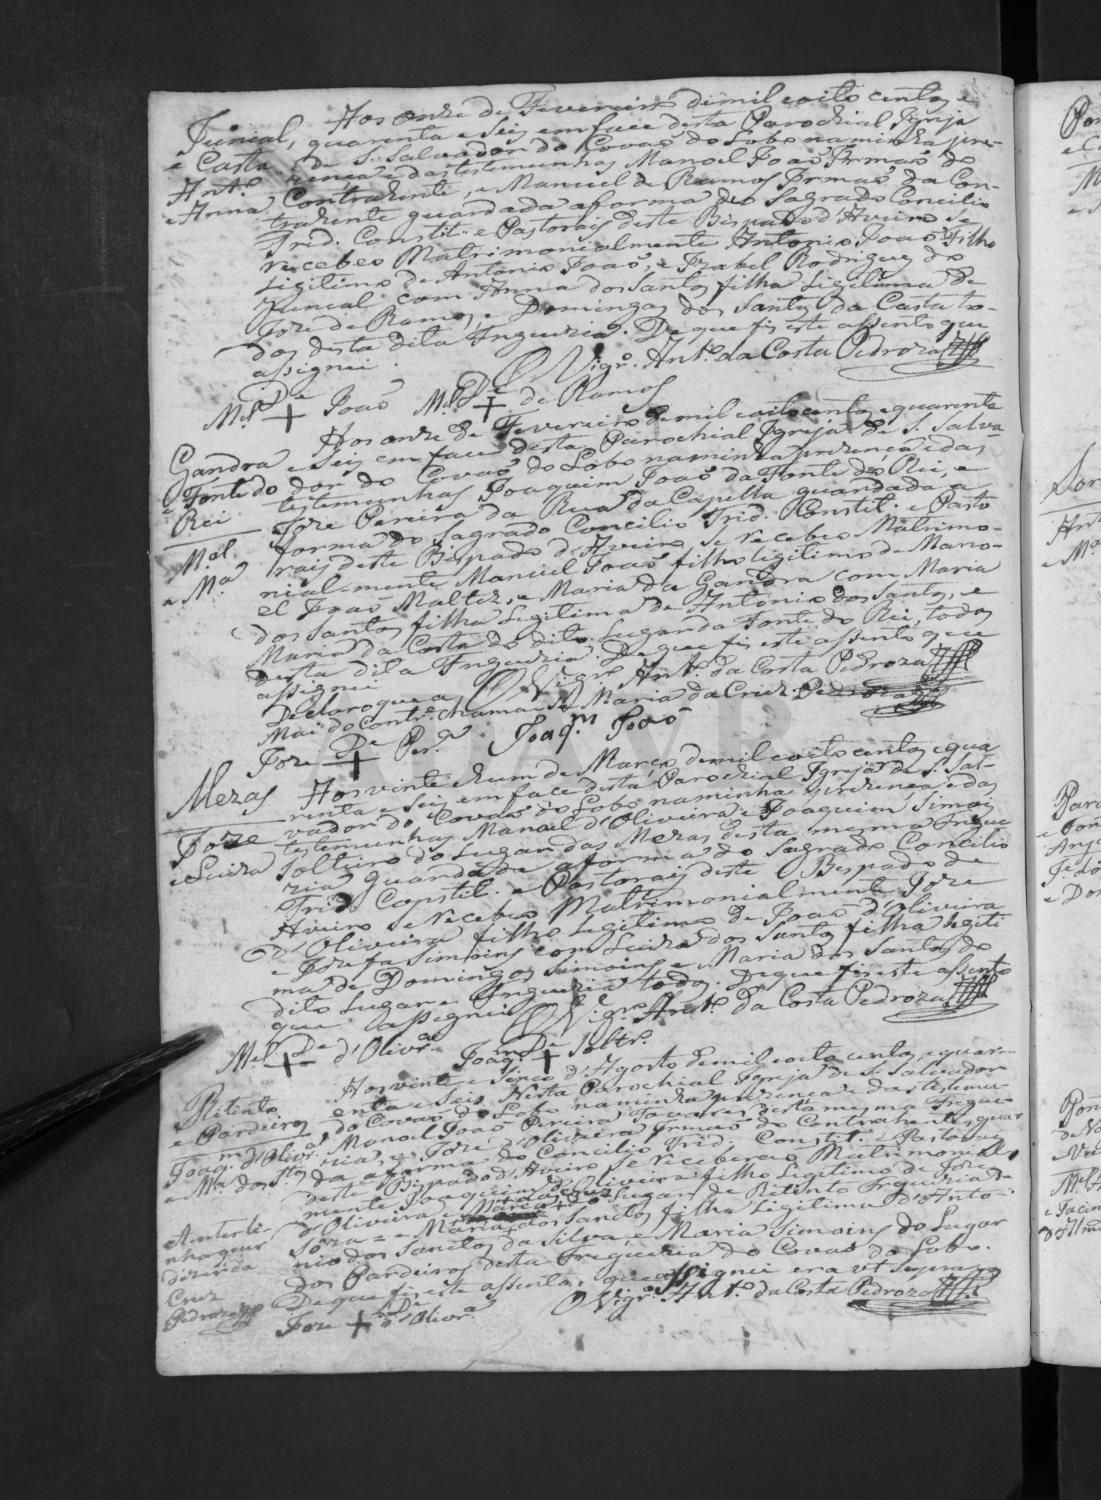 Aos onze de Fevereiro de mil e oito centos e
Juncal, quarenta e Seis em face desta Parochial Igreja
e Casta de S. Salvador do Covaõ do Lobo na minha pre-
Ant.º zença e das testemunhas Manoel Joaõ Irmaõ do
e Anna Contrahente, e Manuel de Ramos Irmaõ da Con-
trahente guardada a forma do Sagrado Concilio
Trid. Constit. e Pastorais deste Bispado d'Aveiro se
recebeo Matrimonialmente Antonio Joaõ Filho
Ligitimo de Antonio Joaõ, e Izabel Rodrigues do
Juncal: com Anna dos Santos filha Ligitima de
Joze de Ramos, e Domingas dos Santos da Casta to-
dos desta dita Freguezia. De que fis este assento que
assignei.
O Vigr.º Ant.º da Costa Pedroza
M.el De + Joaõ M.el De + de Ramos
Aos onze de Fevereiro de mil e oito centos e quarenta
Gandra e Seis em face desta Parochial Igreja de S. Salva-
e Fonte do dor do Covaõ do Lobo na minha prezença e das
Rei testemunhas Joaquim Joaõ da Fonte do Rei, e
Joze Pereira da Rua da Capella guardada a
M.el forma do Sagrado Concilio Trid. Constit. e Pasto
e M.a rais deste Bispado d'Aveiro se recebeo Matrimo-
nial-mente Manuel Joaõ filho ligitimo de Mano-
el Joaõ Maltez, e Maria da Gandra com Maria
dos Santos filha Legitima de Antonio dos Santos, e
Maria da Costa do dito Lugar da Fonte do Rei, todos
desta dita Freguezia. De que fis este assento que
assignei O Vigr.º Ant.º da Costa Pedroza
Declaro que a
Mai do Contr.e chama se Maria da Cruz. Pedroza
Joze De + Per.a Joaq.m Joaõ
Mezas Aos vinte e hum de Março de mil e oito centos e qua
renta e Seis em face desta Parochial Igreja de S. Sal-
Joze vador do Covaõ do Lobo na minha prezença e das
e Luiza testemunhas Manoel d'Oliveira e Joaquim Simois
Solteiro do Lugar das Mezas desta mesma Fregue
zia: Guardada a forma do Sagrado Concilio
Trid. Constit. e Pastorais deste Bispado de
Aveiro se recebeo Matrimonialmente Joze
d'Oliveira filho Legitimo de Joaõ d'Oliveira
e Jozefa Simoins com Luiza dos Santos filha Legiti
ma de Domingos Simoins e Maria dos Santos do
dito Lugar e Freguezia todos. De que fis este assento
que assignei O Vigr.º Ant.º da Costa Pedroza
M.el De + d'Olivr.a Joaq.m De + Soltr.º
Aos vinte e Sinco d'Agosto de mil e oito centos e quar-
Ritento enta e Seis Nesta Parochial Igreja de S. Salvador
e Pardeiros do Covaõ do Lobo na minha prezença e das testemu-
Joaq.m d'Olivr.a nhas Manoel Joaõ Pereira Tavares desta mesma Fregue
e M.a dos S.tos zia, e Joze d'Oliveira Irmaõ do Contrahente guar
da a forma do Concilio Trid. Constit. e Pastorais
deste Bispado d'Aveiro se receberaõ Matrimonial
mente Joaquim d'Oliveira filho Legitimo de Joze
d'Oliveira e Maria da Cruz do Lugar de Ritento Freguezia de
Soza = e Maria dos Santos filha Legitima d'Anto-
nio dos Santos da Silva, e Maria Simoins do Lugar
dos Pardeiros desta Freguezia do Covaõ do Lobo.
De que fis este assento, que assignei era ut supra
O Vigr.º Ant.º da Costa Pedroza
A enterli-
nha que
diz
Cruz
Pedroza
Joze De + d'Olivr.a